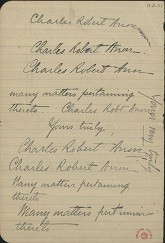 Charles Robert Anon
Charles Robert Anon.
Charles Robert Anon
many matters pertaining
thereto Charles Robt Anon
Yours truly,
Charles Robert Anon
Charles Robert Anon.
Many matters pertaining
thereto
Many matters pertaining
thereto